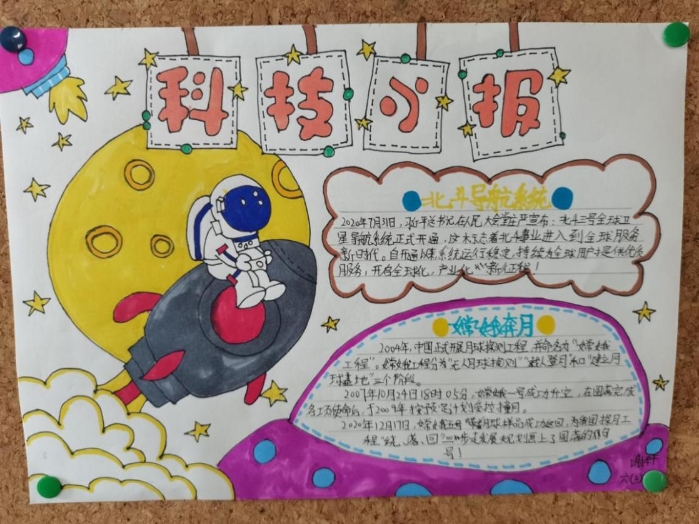 科技小报
北斗导航系统
2020年7月31日，习近平总书记在人民大会堂庄严宣布：北斗三号全球卫
星导航系统正式开通，这标志着北斗事业进入到全球服务
新时代。自开通以来系统运行稳定，持续为全球用户提供优质
服务，开启全球化、产业化新征程！
嫦娥奔月
2004年，中国正式开展月球探测工程，并命名为"嫦娥
工程"。嫦娥工程分为"无人月球探测""载人登月"和"建立月
球基地"三个阶段。
2007年10月24日18时05分，嫦娥一号成功升空，在圆满完成
各项使命后，于2009年按预定计划受控撞月。
2020年12月17日，嫦娥五号 月球样品成功返回，为我国探月工
程"绕、落、回"三步走发展规划画上了圆满的句
号！
六(3)